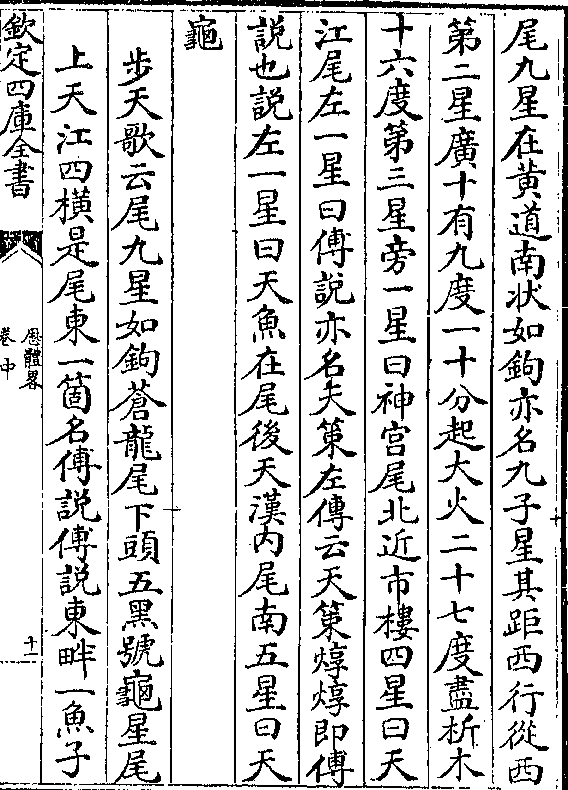 尾九星在黃道南狀如鉤亦名九子星其距西行從西
第二星廣十有九度一十分起大火二十七度盡析木
十六度第三星旁一星曰神宮尾北近市樓四星曰天
江尾左一星曰傅說亦名天策左傳云天策焞焞即傅
說也說左一星曰天魚在尾後天漢内尾南五星曰天
龜
步天歌云尾九星如鉤蒼龍尾下頭五黑號龜星尾
上天江四橫是尾東一箇名傅說傅說東畔一魚子
欽定四庫全書
厯體畧
卷中
十一